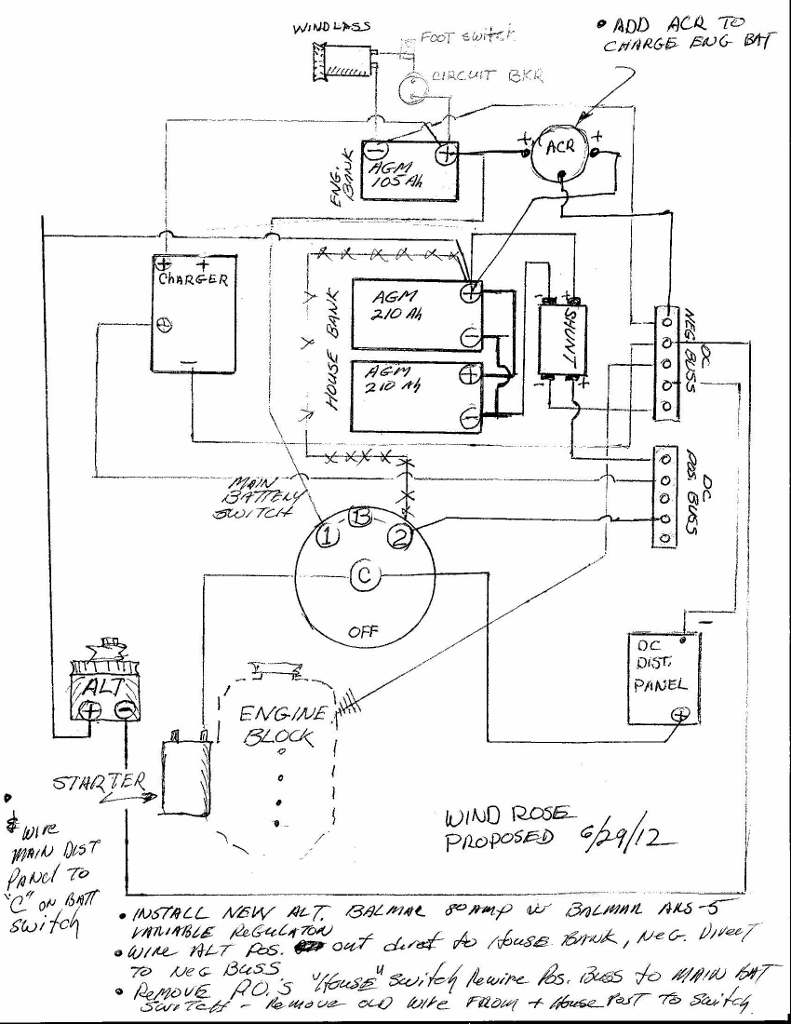 WINDLASS
FOOT SWITCH
CIRCUIT BKR
• ADD ACR TO
CHARGE ENG BAT
+ ACR +
−
+
AGM
105 Ah
ENG.
BANK
+ +
CHARGER
+
−
HOUSE BANK
AGM
210 Ah
+
−
AGM
210 Ah
+
−
− +
SHUNT
− +
DC
NEG BUSS
DC
POS. BUSS
MAIN
BATTERY
SWITCH
1 B 2
C
OFF
ALT
+ −
ENGINE
BLOCK
STARTER
−
DC
DIST.
PANEL
+
WIND ROSE
PROPOSED 6/29/12
• WIRE
MAIN DIST
PANEL TO
"C" ON BATT
SWITCH
• INSTALL NEW ALT. BALMAR 80 AMP W BALMAR ARS-5
VARIABLE REGULATOR
• WIRE ALT POS. out direct to HOUSE BANK, NEG. DIRECT
TO NEG BUSS
• REMOVE P.O.'S "HOUSE" SWITCH Rewire Pos. BUSS to MAIN BAT
SWITCH - REMOVE OLD WIRE FROM + HOUSE POST TO SWITCH.